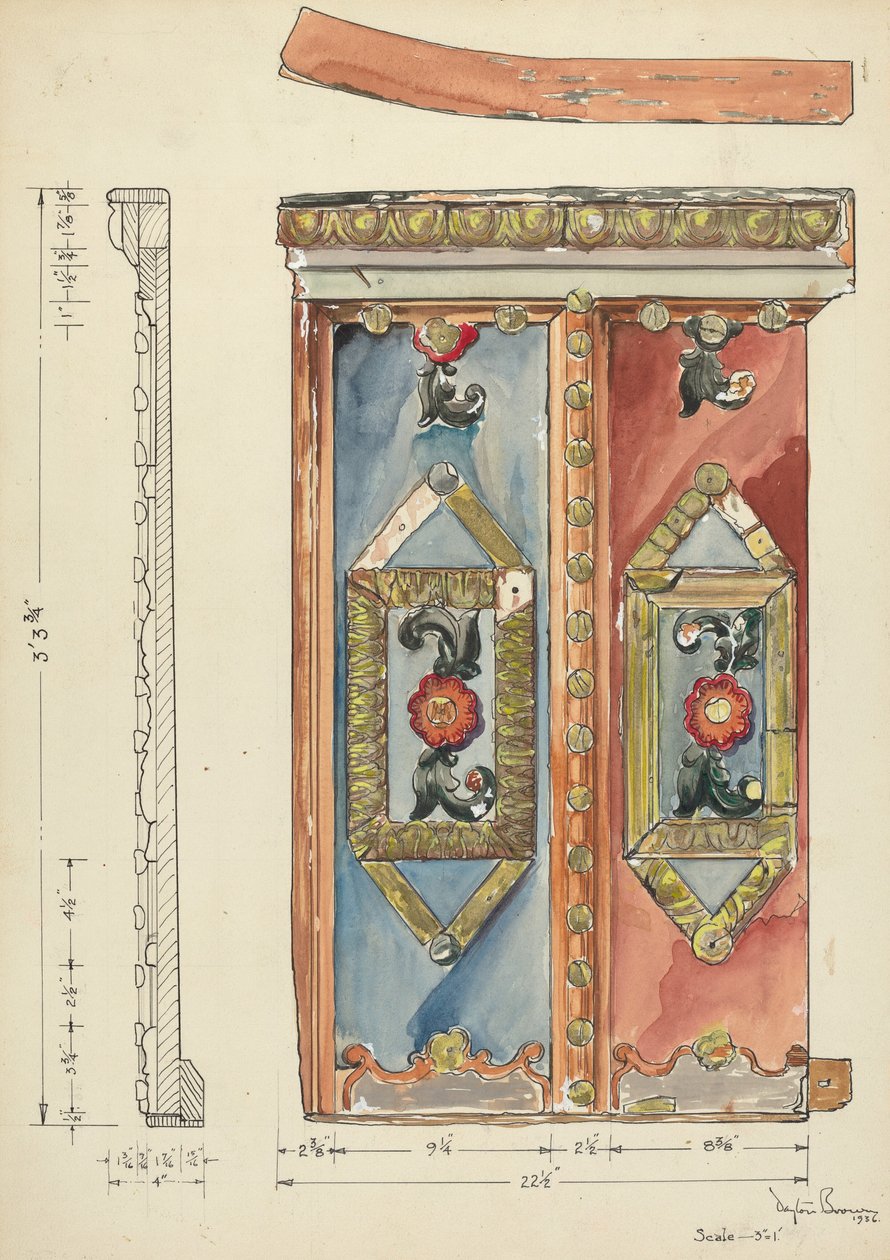 5/8"
1 7/8"
3/4"
1 1/2"
1"
3' 3 3/4"
4 1/2"
2 1/2"
3 3/4"
1/2"
1 3/16 7/16 1 7/16 15/16
4"
2 3/8" 9 1/4" 2 1/2" 8 3/8"
22 1/2"
Dayton Brown
1936.
Scale — 3"=1'